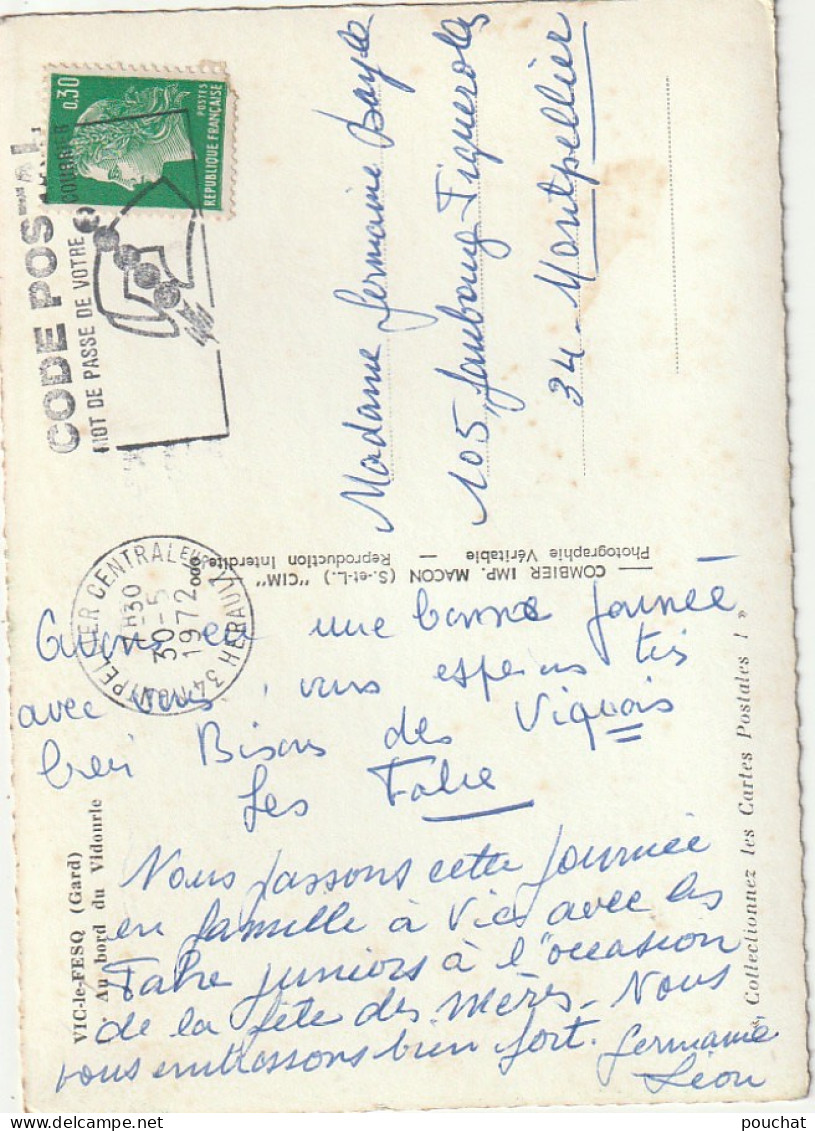 0,30
POSTES
REPUBLIQUE FRANÇAISE
CODE POSTAL
MOT DE PASSE DE VOTRE COURRIER
MONTPELLIER CENTRAL
H30
30-5
1972
34 HERAULT
Madame Germaine Bayle
105, Faubourg Figuerolles
34 - Montpellier
COMBIER IMP. MACON (S.-et-L.) "CIM"
Photographie Véritable — Reproduction Interdite
Avons eu une bonne journée
avec vous, vous espérons très
bien Bisous des Viquois
Les Fabre
Nous passons cette journée
en famille à Vic avec les
Fabre juniors à l'occasion
de la fête des mères - Nous
vous embrassons bien fort. Germaine
Léon
VIC-le-FESQ (Gard)
Au bord du Vidourle
« Collectionnez les Cartes Postales ! »
pouchat